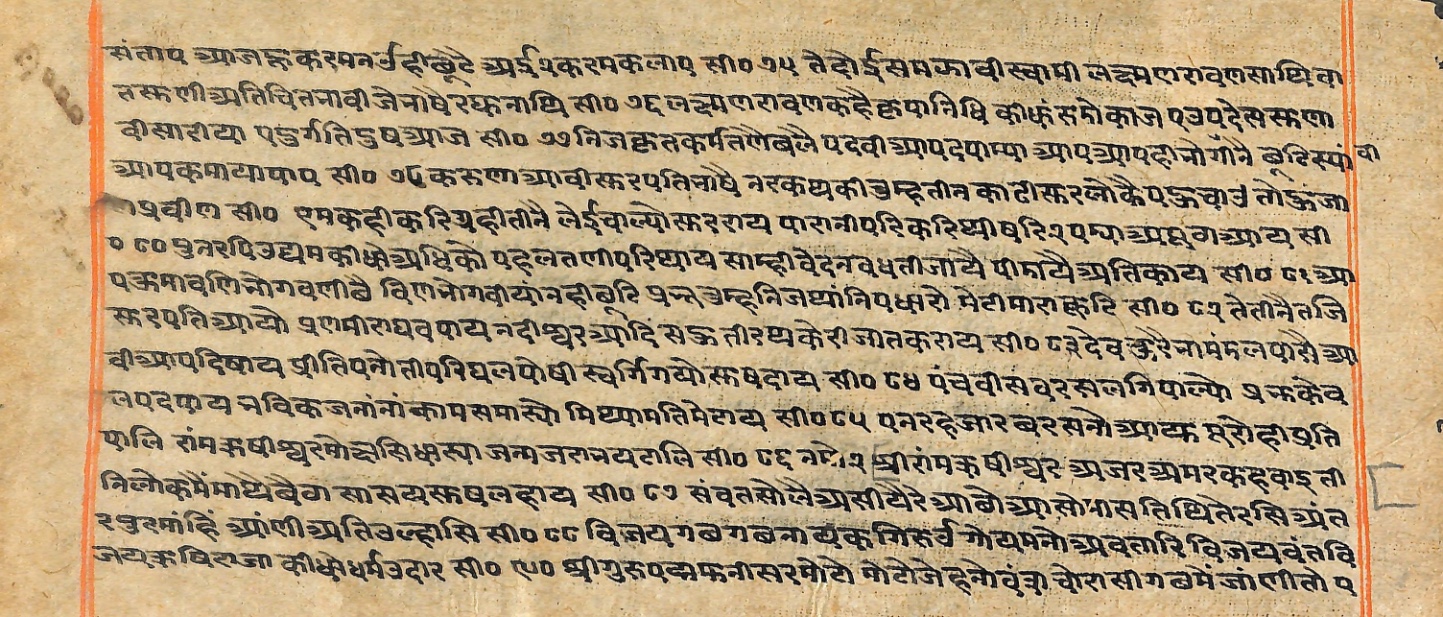 संताप आजकु करमनर्उहीछूटै अईएकरमकलाप सी० ७५ तेहोईसमकावीस्वामी लक्ष्मणरावणसाथि वा
तसुणीअतिचितनावी जेनाषैरघुनाथि सी० ७६ लक्ष्मणरावणकहैकृपानिधि कीधुंसमोकाज पउपदेससुणा
वीसारीया पडुर्गतिदुषआज सी० ७७ निजकृतकर्मतणैबलै पदवीआपदपाम्या आपआपहीनोगोनै बूटिस्यां वी
आपकमायापाप सी० ७८ करुणाआवीसुरपतिनाषै नरकथकीतुम्हतीन काटीसुरलोकैपऊचाउ तोऊजा
णप्रवीण सी० एमकहीकरिग्रहीतीनै लेईचाल्योसुरराय पारानीपरिकरिथीषरिएपम्याअपूठाआय सी
० ८० पुनरपिउद्यमकीधोअधिको पहलतणीपरिथाय साम्हीवेदनवधतीजायै पीडायैअतिकाय सी० ८१ आ
पऊमावणिनोगवणीछै विणनोगवीयांनहीछूटि प्रनुतुम्हनिजथांनिपधारो मेटोमाराकूटि सी० ८२ तेतीनैतजि
सुरपतिआयो प्रणमीराघवपाय नदीश्वरआदिंसऊ तीरथकेरीजातकराय सी० ८३ देवकुरैनामंमलपारौआ
वीआपदिषाय प्रीतिपनोतीपरिघलपोषी स्वर्गिगयोसुषदाय सी० ८४ पंचवीसवरसलगिपाल्यो प्रनुकेव
लपदपाय नविकजनांनांकामसमास्यो मिथ्यामतिमेटाय सी० ८५ पनरहैजारबरसनोआयु पूरोहीप्रति
पालि रांमऋषीश्वरमोक्षसिधास्या जन्मजरानयटालि सी० ८६ नमोए श्रीरांमऋषीश्वर अजरअमरकहवाइ ती
निलोकमैंमाथैबैठा सासयसुषलहाय सी० ८७ संवतसोलैअसीयैरै आछोआसोमास तिथितेरसिअंत
रपुरमांहिं आंणीअतिउल्हासि सी० ८८ विजयगछगछनायकगिरुर्उ गोयमनोअवतारि विजयवंतवि
जयऋषिराजा कीधोधर्मउदार सी० ९० श्रीगुरुपद्मफुनीसरमोटो मोटोजेहनोवंश चोरासीगछमेंजांणीतो प